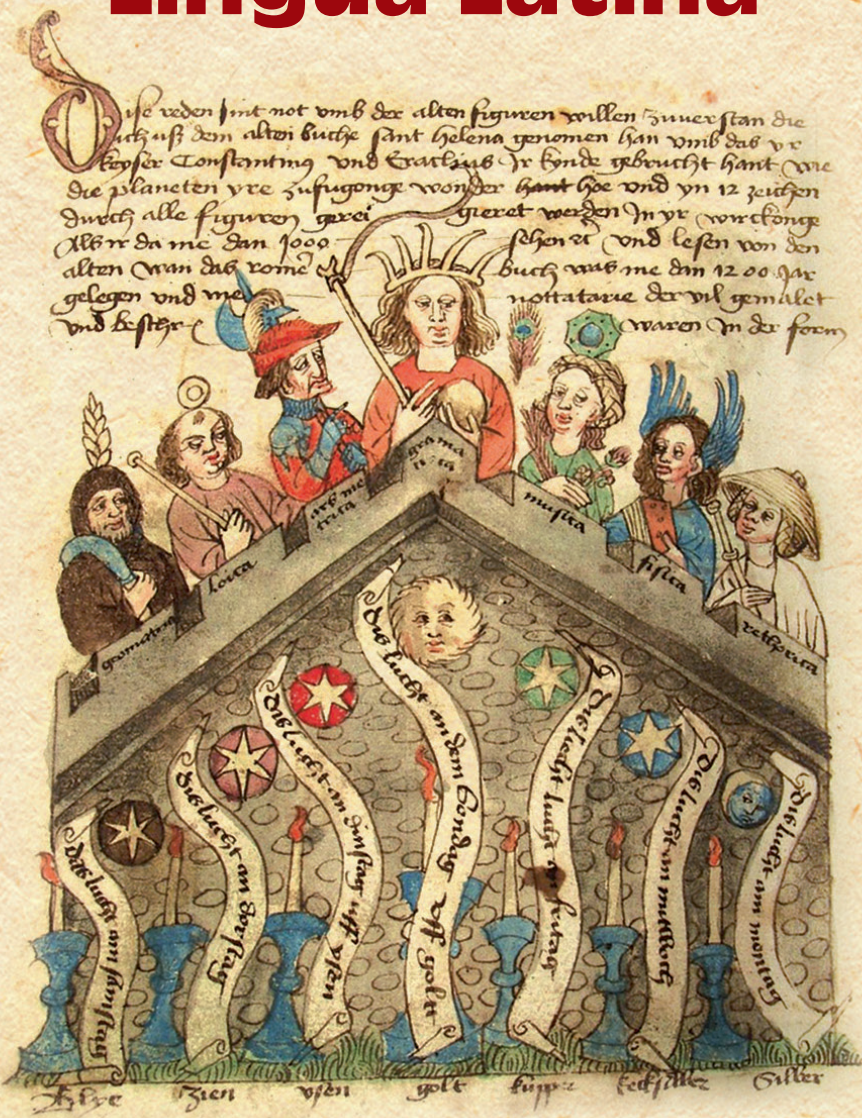 Lingua Latina
Dise reden sint not vmb der alten figuren willen zuuerstan die
ich vß dem alten buche sant helena genomen han vmb das yr
keyser Constantinus vnd Eraclius Ir kynde gebrucht hant wie
die planeten yre zufugonge wonder hant hoe vnd yn 12 zeichen
durch alle figuren gerei gieret werden In yr wirckonge
Als ir da me dan 1000 sehen vnd lesen von den
alten wan das rome buch was me dan 1200 Jar
gelegen vnd me nottatarie der vil gemalet
vnd beschr waren In der form
grama
tica
ars me
trica
musica
loica
fisica
geometria
rethorica
Das lucht an dem Sondag vff golt
Das lucht an dinstag vff ysen
Das lucht an dorstag
Das lucht am samstag
Das lucht an fritag
Das lucht an mitwoch
Das lucht am montag
zien
ysen
golt
kupper
kecksilber
Silber